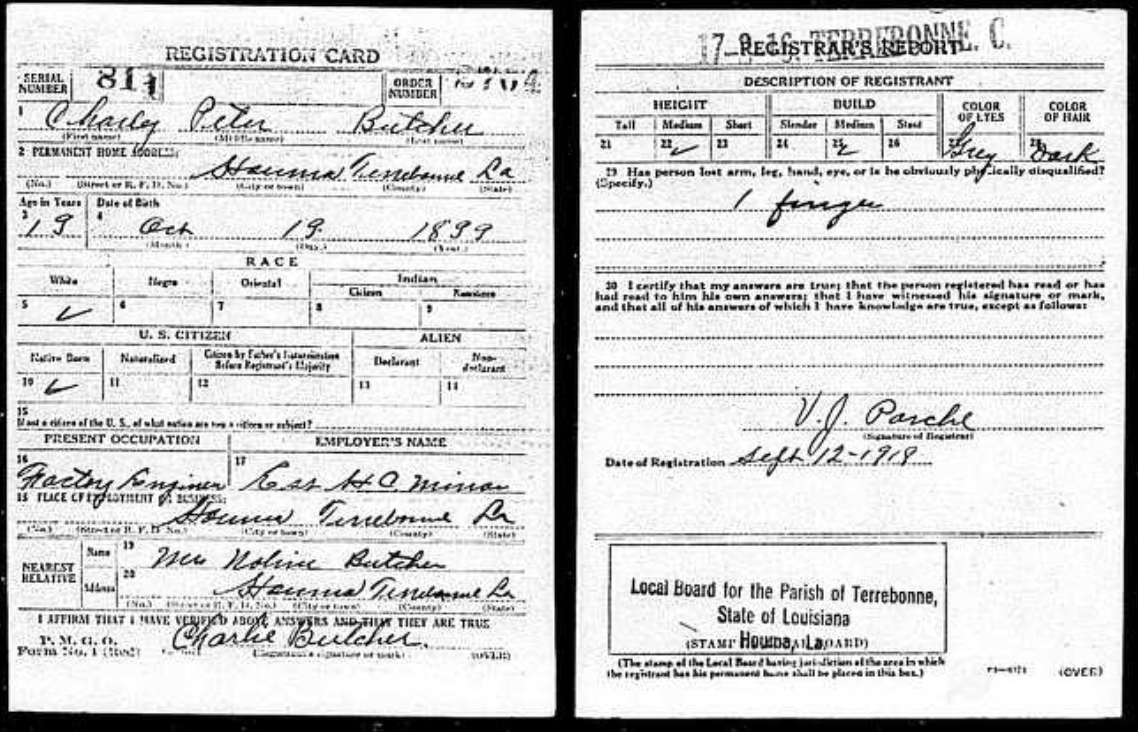 REGISTRATION CARD
SERIAL NUMBER 811
ORDER NUMBER
1 Charley Peter Butcher
(First name) (Middle name) (Last name)
2 PERMANENT HOME ADDRESS:
Houma Terrebonne La
(No.) (Street or R. F. D. No.) (City or town) (County) (State)
Age in Years Date of Birth
3 4
19 Oct 19 1899
(Month) (Day) (Year)
RACE
White Negro Oriental Indian
Citizen
5 ✓ 6 7 8 9
U. S. CITIZEN ALIEN
Native Born Naturalized Citizen by Father's Naturalization Before Registrant's Majority Declarant Non-declarant
10 ✓ 11 12 13 14
15
If not a citizen of the U. S., of what nation are you a citizen or subject?
PRESENT OCCUPATION EMPLOYER'S NAME
16 17
Factory Enginer Est H C. Minor
18 PLACE OF EMPLOYMENT OR BUSINESS:
Houma Terrebonne La
(No.) (Street or R. F. D. No.) (City or town) (County) (State)
NEAREST RELATIVE
Name 19 Mrs Butcher
Address 20 Houma Terrebonne La
(No.) (Street or R. F. D. No.) (City or town) (County) (State)
I AFFIRM THAT I HAVE VERIFIED ABOVE ANSWERS AND THAT THEY ARE TRUE
P. M. G. O.
Form No. 1 (Red) Charlie Butcher.
(Registrant's signature or mark) (OVER)
17-9-16 TERREBONNE. C.
REGISTRAR'S REPORT
DESCRIPTION OF REGISTRANT
HEIGHT BUILD COLOR OF EYES COLOR OF HAIR
Tall Medium Short Slender Medium Stout
21 22 ✓ 23 24 25 ✓ 26 27 Grey 28 Dark
29 Has person lost arm, leg, hand, eye, or is he obviously physically disqualified?
(Specify.)
1 finger
30 I certify that my answers are true; that the person registered has read or has
had read to him his own answers; that I have witnessed his signature or mark,
and that all of his answers of which I have knowledge are true, except as follows:
V. J.
(Signature of Registrar)
Date of Registration Sept 12-1918
Local Board for the Parish of Terrebonne,
State of Louisiana
(STAMP Houma, La. BOARD)
(The stamp of the Local Board having jurisdiction of the area in which
the registrant has his permanent home shall be placed in this box.)
(OVER)